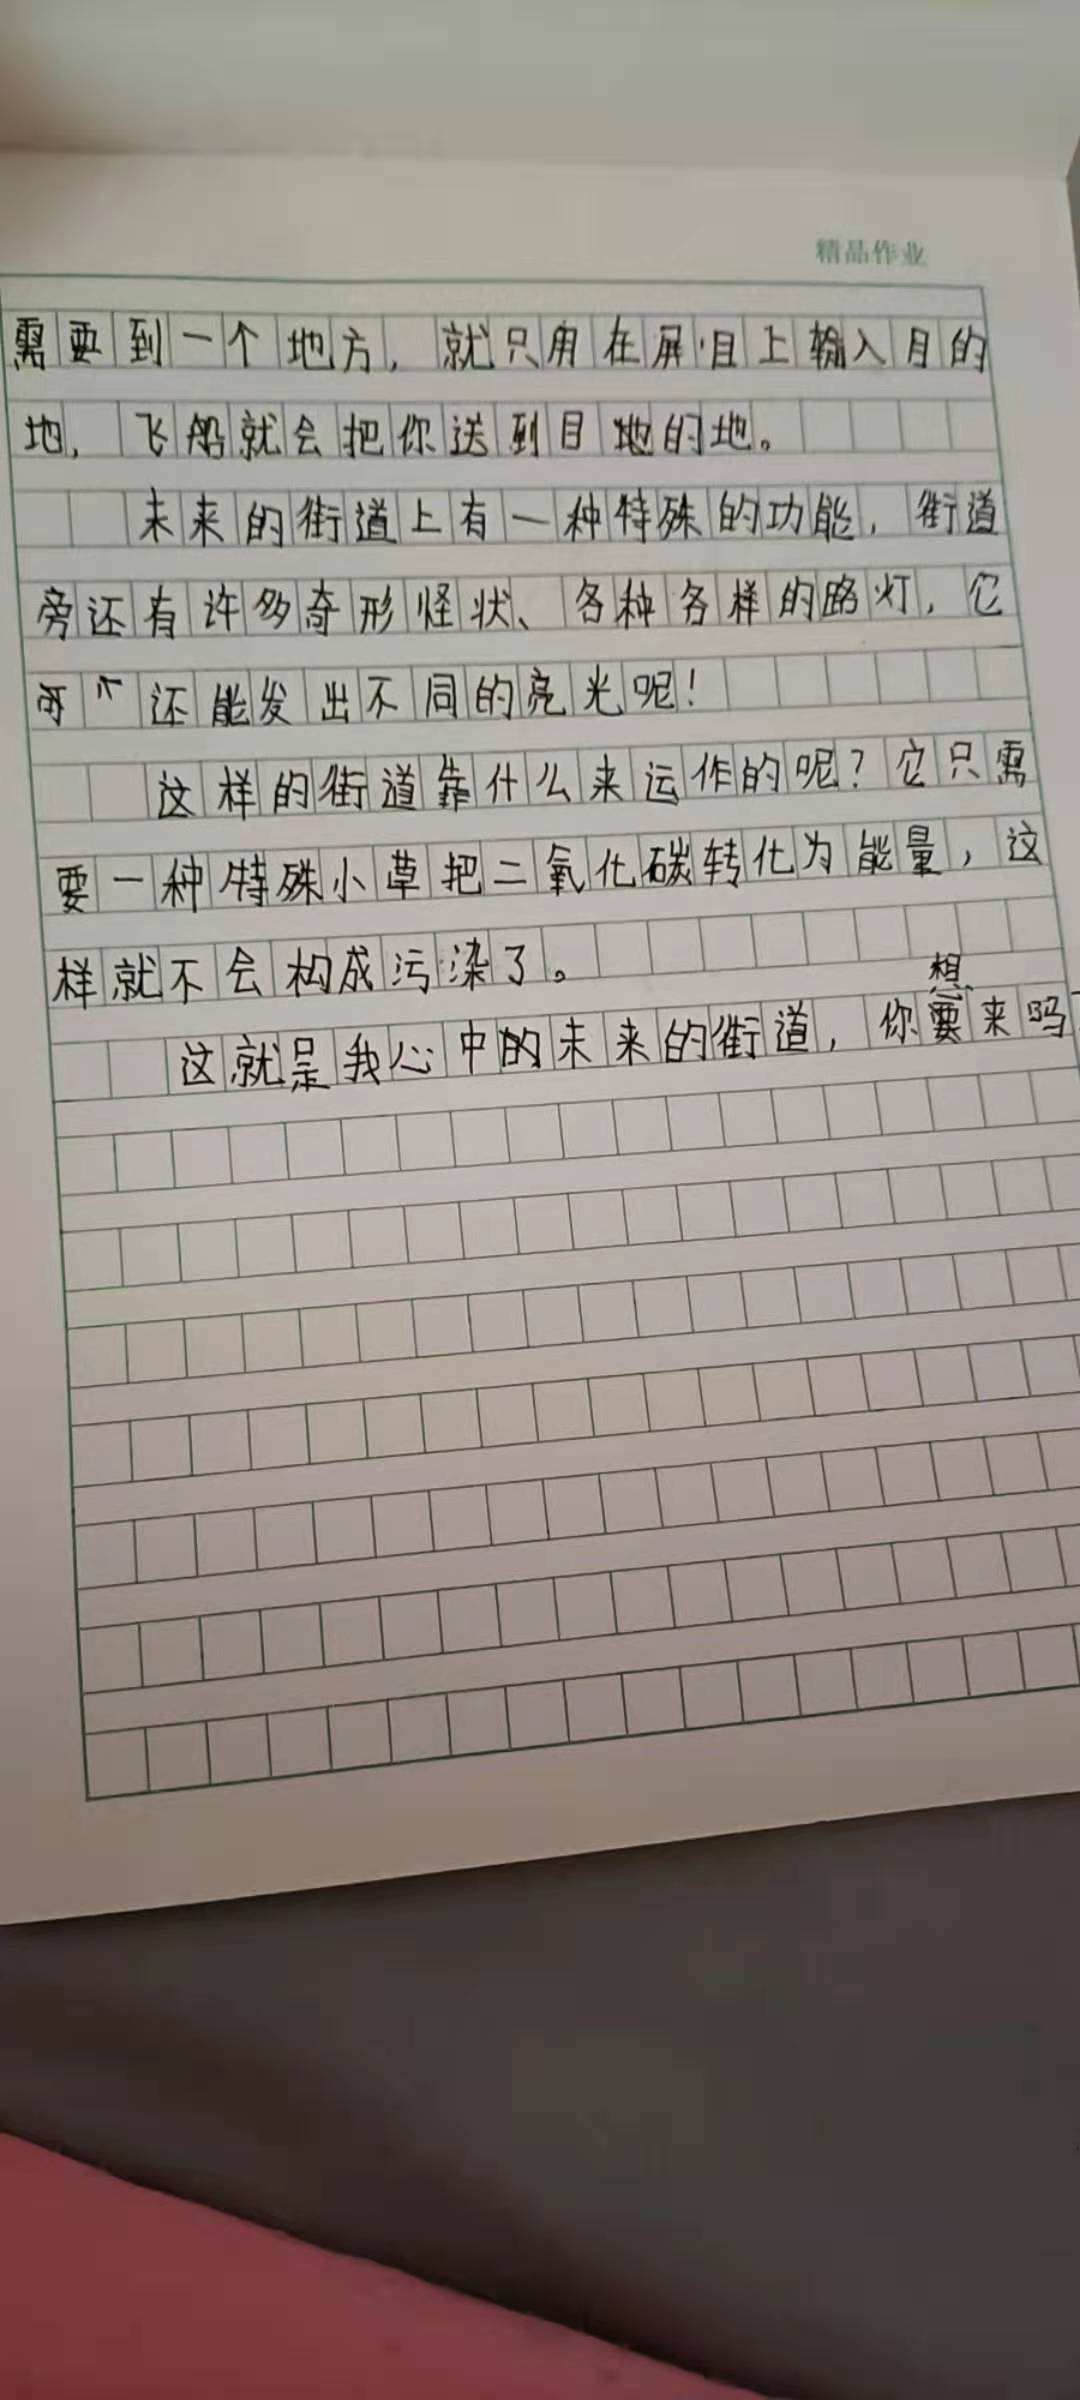 精品作业
需要到一个地方，就只用在屏目上输入目的
地，飞船就会把你送到目地的地。
未来的街道上有一种特殊的功能，街道
旁还有许多奇形怪状、各种各样的路灯，它
还能发出不同的亮光呢！
这样的街道靠什么来运作的呢？它只需
要一种特殊小草把二氧化碳转化为能量，这
样就不会构成污染了。
想
这就是我心中的未来的街道，你要来吗